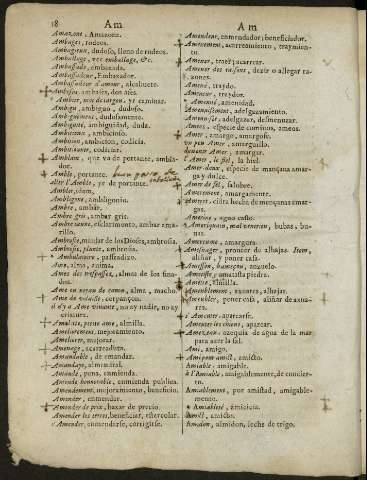 18 Am
Amazone, Amazona.
Ambages, rodeos.
Ambagieux, dudoso, lleno de rodeos.
Emballage, vee emballage, &c.
Ambassade, embaxada.
Ambassadeur, Embaxador.
Ambassadeur d'amour, alcahuete.
Ambesas, ambases, dos ases.
Ambler, nos decargen, yr caminar.
Ambigu, ambiguo, dudoso.
Ambiguement, dudosamente.
Ambiguité, ambiguidad, duda.
Ambitieux, ambicioso.
Ambition, ambicion, codicia.
Ambitionner, codiciar.
Amblant, que va de portante, ambla-
dor.
Amble, portante.
aller l'Amble, yr de portante
Ambler,
Ambligone, ambligonio.
Ambre, ambar.
Ambre gris, ambar gris.
Ambre iaune, esclarimiento, ambar ama-
rillo.
Ambrosie, manjar de los Dioses, ambrosia.
Ambrosie, plante, ambrosia.
Ambulatoire, passeadizo.
Ame, alma, anima.
Ames des trespassez, almas de los fina-
dos.
Ame en noyau de canon, alma, macho.
Ame de volaille, corpançon.
il n'y a Ame vivante, no ay nadie, no ay
criatura.
Amelette, petite ame, almilla.
Ameliorement, mejoramiento.
Ameliorer, mejorar.
Amenage, acarreadura.
Amandable, de emandar.
Amandaye, almendral.
Amande, pena, enmienda.
Amende honnorable, enmienda publica.
Amendement, mejoramiento, beneficio.
Amender, enmendar.
Amender de prix, baxar de precio.
Amender les terres, beneficiar, estercolar.
s'Amender, enmendarse, corrigirse.
Am
Amendeur, enmendador; beneficiador.
Amenement, acarreamiento, traymien-
to.
Amener, traër; acarrear.
Amener des raisons, dezir o allegar ra-
zones.
Amené, traydo.
Ameneur, traydor.
Amenité, amenidad.
Amenuisement, adelgazamiento.
Amenuiser, adelgazar, desmenuzar.
Ameos, especie de cominos, ameos.
Amer, amargo, amargoso.
un peu Amer, amarguillo.
devenir Amer, amargar.
l'Amer, le fiel, la hiel.
Amer-doux, especie de mançana amar-
ga y dulce.
Amer de sel, salobre.
Amerement, amargamente.
cidra hecha de mançanas amar-
gas.
agua coste.
mal venerien, bubas, bu-
vas.
Amertume, amargura.
Amesnager, proueer de alhajas. Item,
aliñar, y poner casa.
Amesson, hameçon, anzuelo.
Amethiste, amatista piedra.
Amette, almilla.
Ameublement, axuares, alhajas.
Ameubler, poner casa, aliñar de axua-
res.
s'Ameuter, apercarse.
Ameuter les chiens, aparear.
Amezzan, azequia de agua de la mar
para azer la sal.
Ami, amigo.
Ami pour amict, amicto.
Amiable, amigable.
à l'Amiable, amigablemente, de concier-
to.
Amiablement, por amistad, amigable-
mente.
Amiableté, amicicia.
Amict, amicto.
Amidon, almidon, seche de trigo.